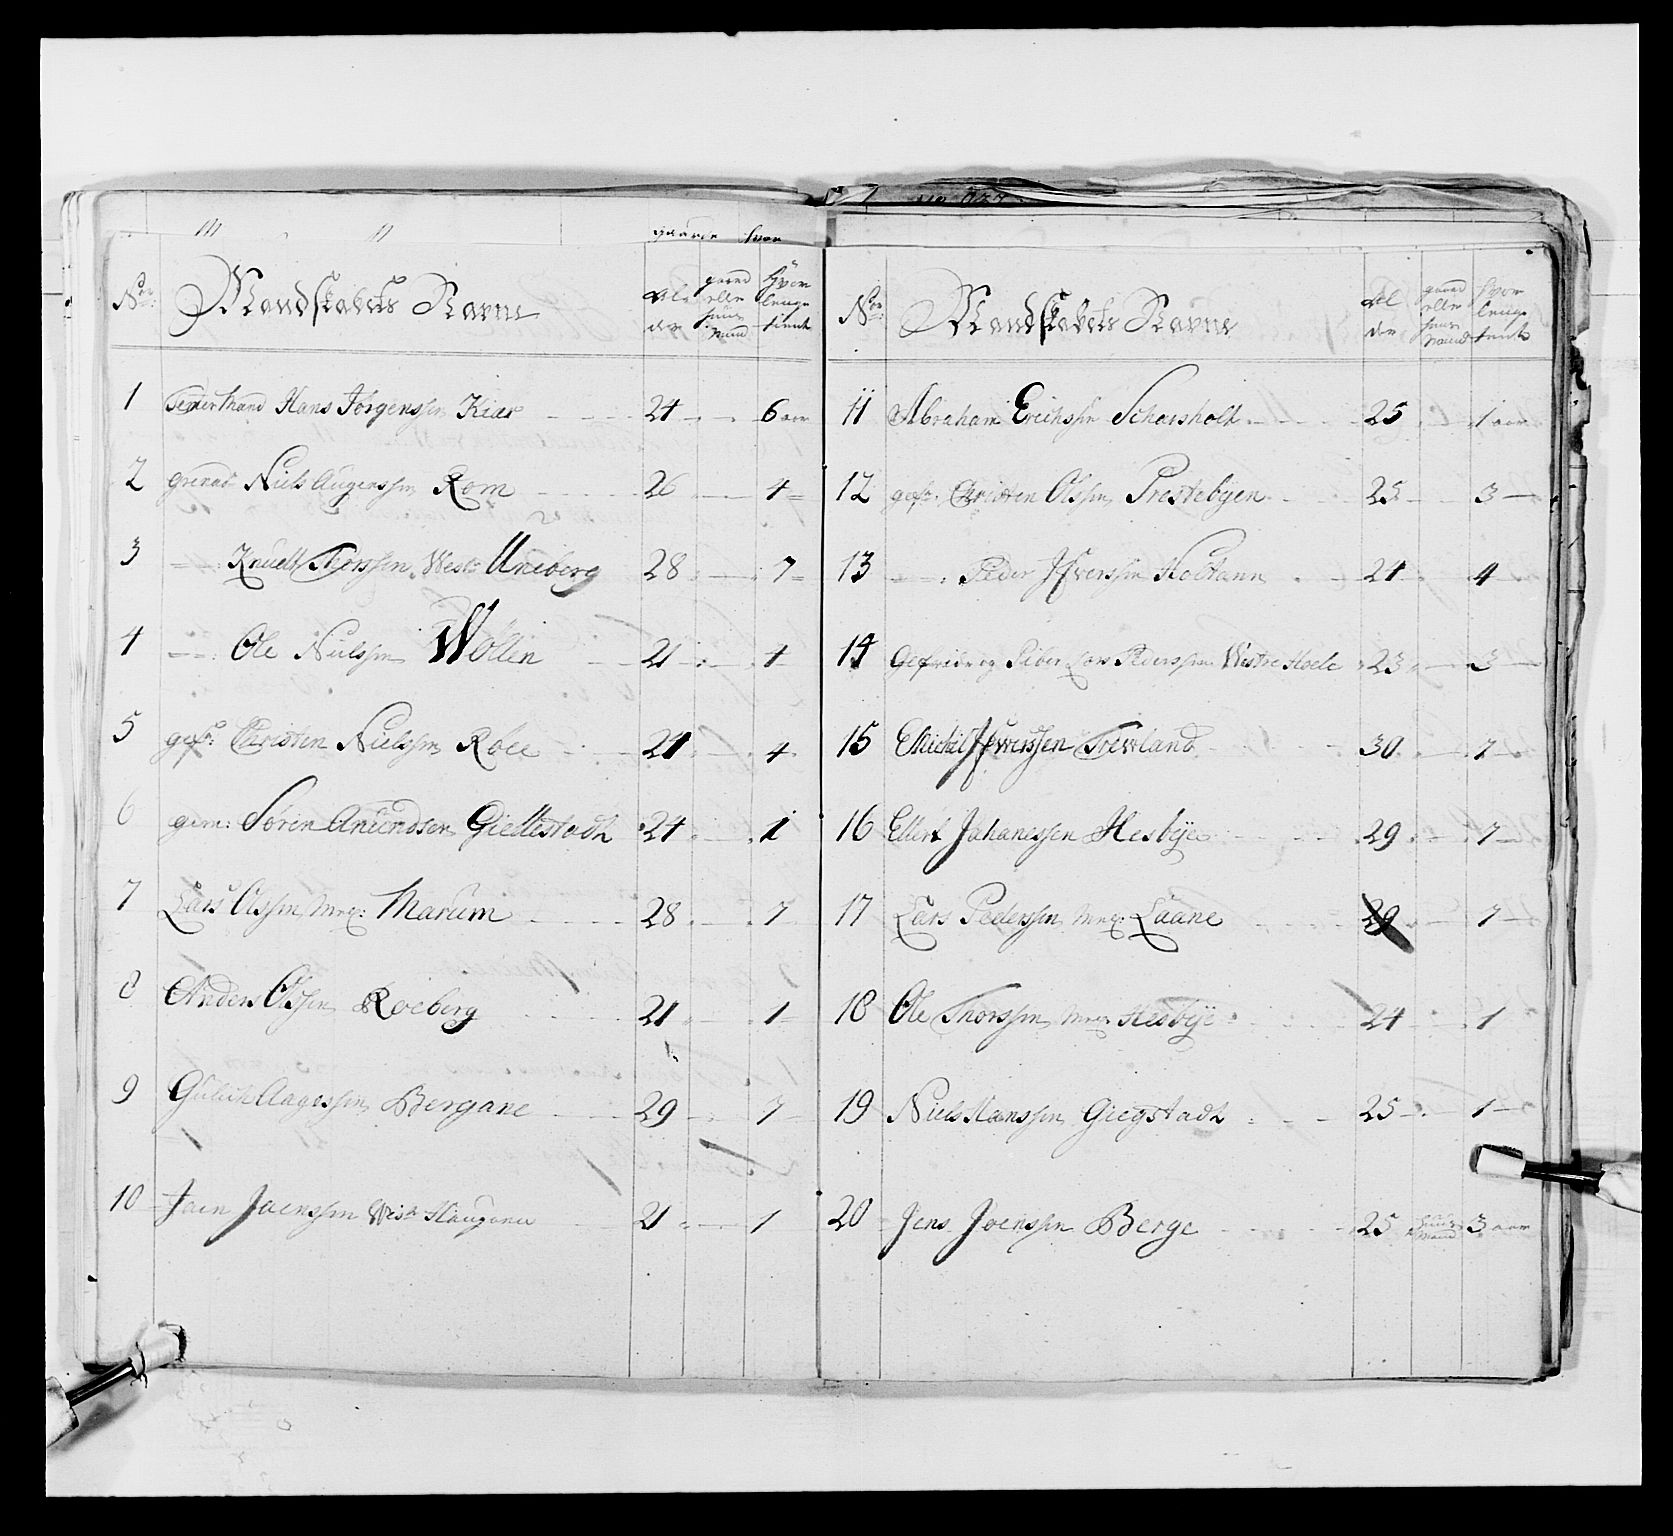 Nor: Mandskabets Navne Alder gaard eller huus Mand Hvor lenge tient
1 Hans Jørgenssen Kiær 24 6 aar
2 grenad Niels Augenssen Rom 26 4
3 Knuelt Thorssen West Uneberg 28 7
4 Ole Nielssen Wøllen 21 1
5 gefr: Christen Nielssen Røee 24 4
6 gem: Søren Anundsen Giellestadt 24 1
7 Lars Olssen Marum 28 7
8 Anders Olssen Roeberg 21 1
9 Gulich Aagessen Bergane 29 7
10 Joen Joenssen West Haugene 21 1
Nor: Mandskabets Navne Alder gaard eller huus Mand Hvor lenge tient
11 Abraham Erichssen Schorsholt 25 1 aar
12 gefr: Christen Olssen Prestebyen 25 3
13 Peder Iverssen Holtann 24 4
14 Pederssen Westre Hole 23 3
15 Michel Iverssen 30 7
16 Ellert Johanessen Hesbye 29 7
17 Lars Pederssen Laane 29 7
18 Ole Thorssen Hesbye 24 1
19 Niels Hanssen Giegstadt 25 1
20 Jens Joenssen Berge 25 huus Mand 3 aar